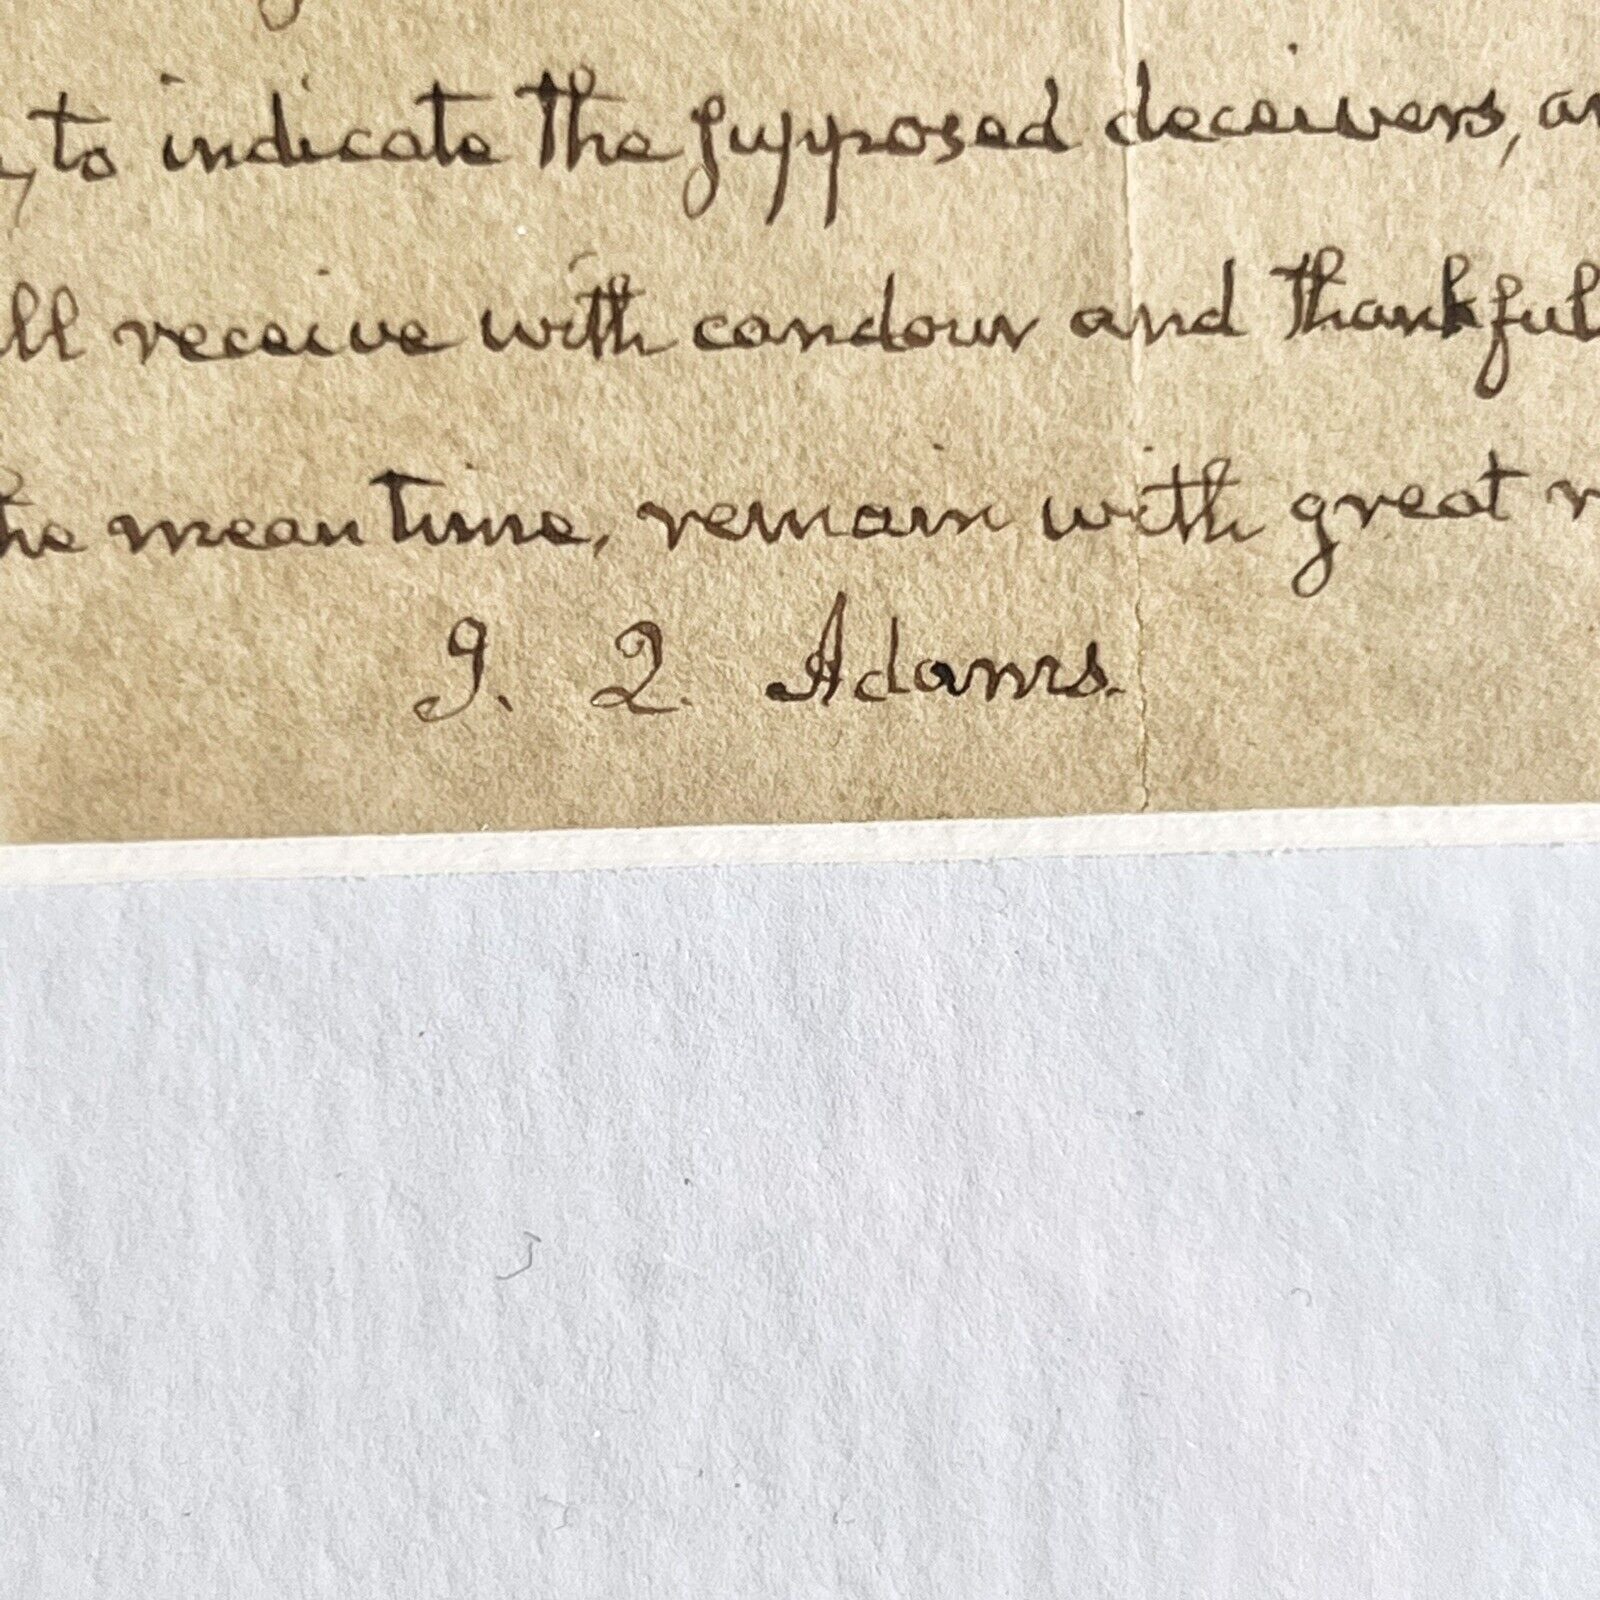 , to indicate the supposed deceivers, an
ll receive with candour and thankful
he mean time, remain with great r
J. Q. Adams.